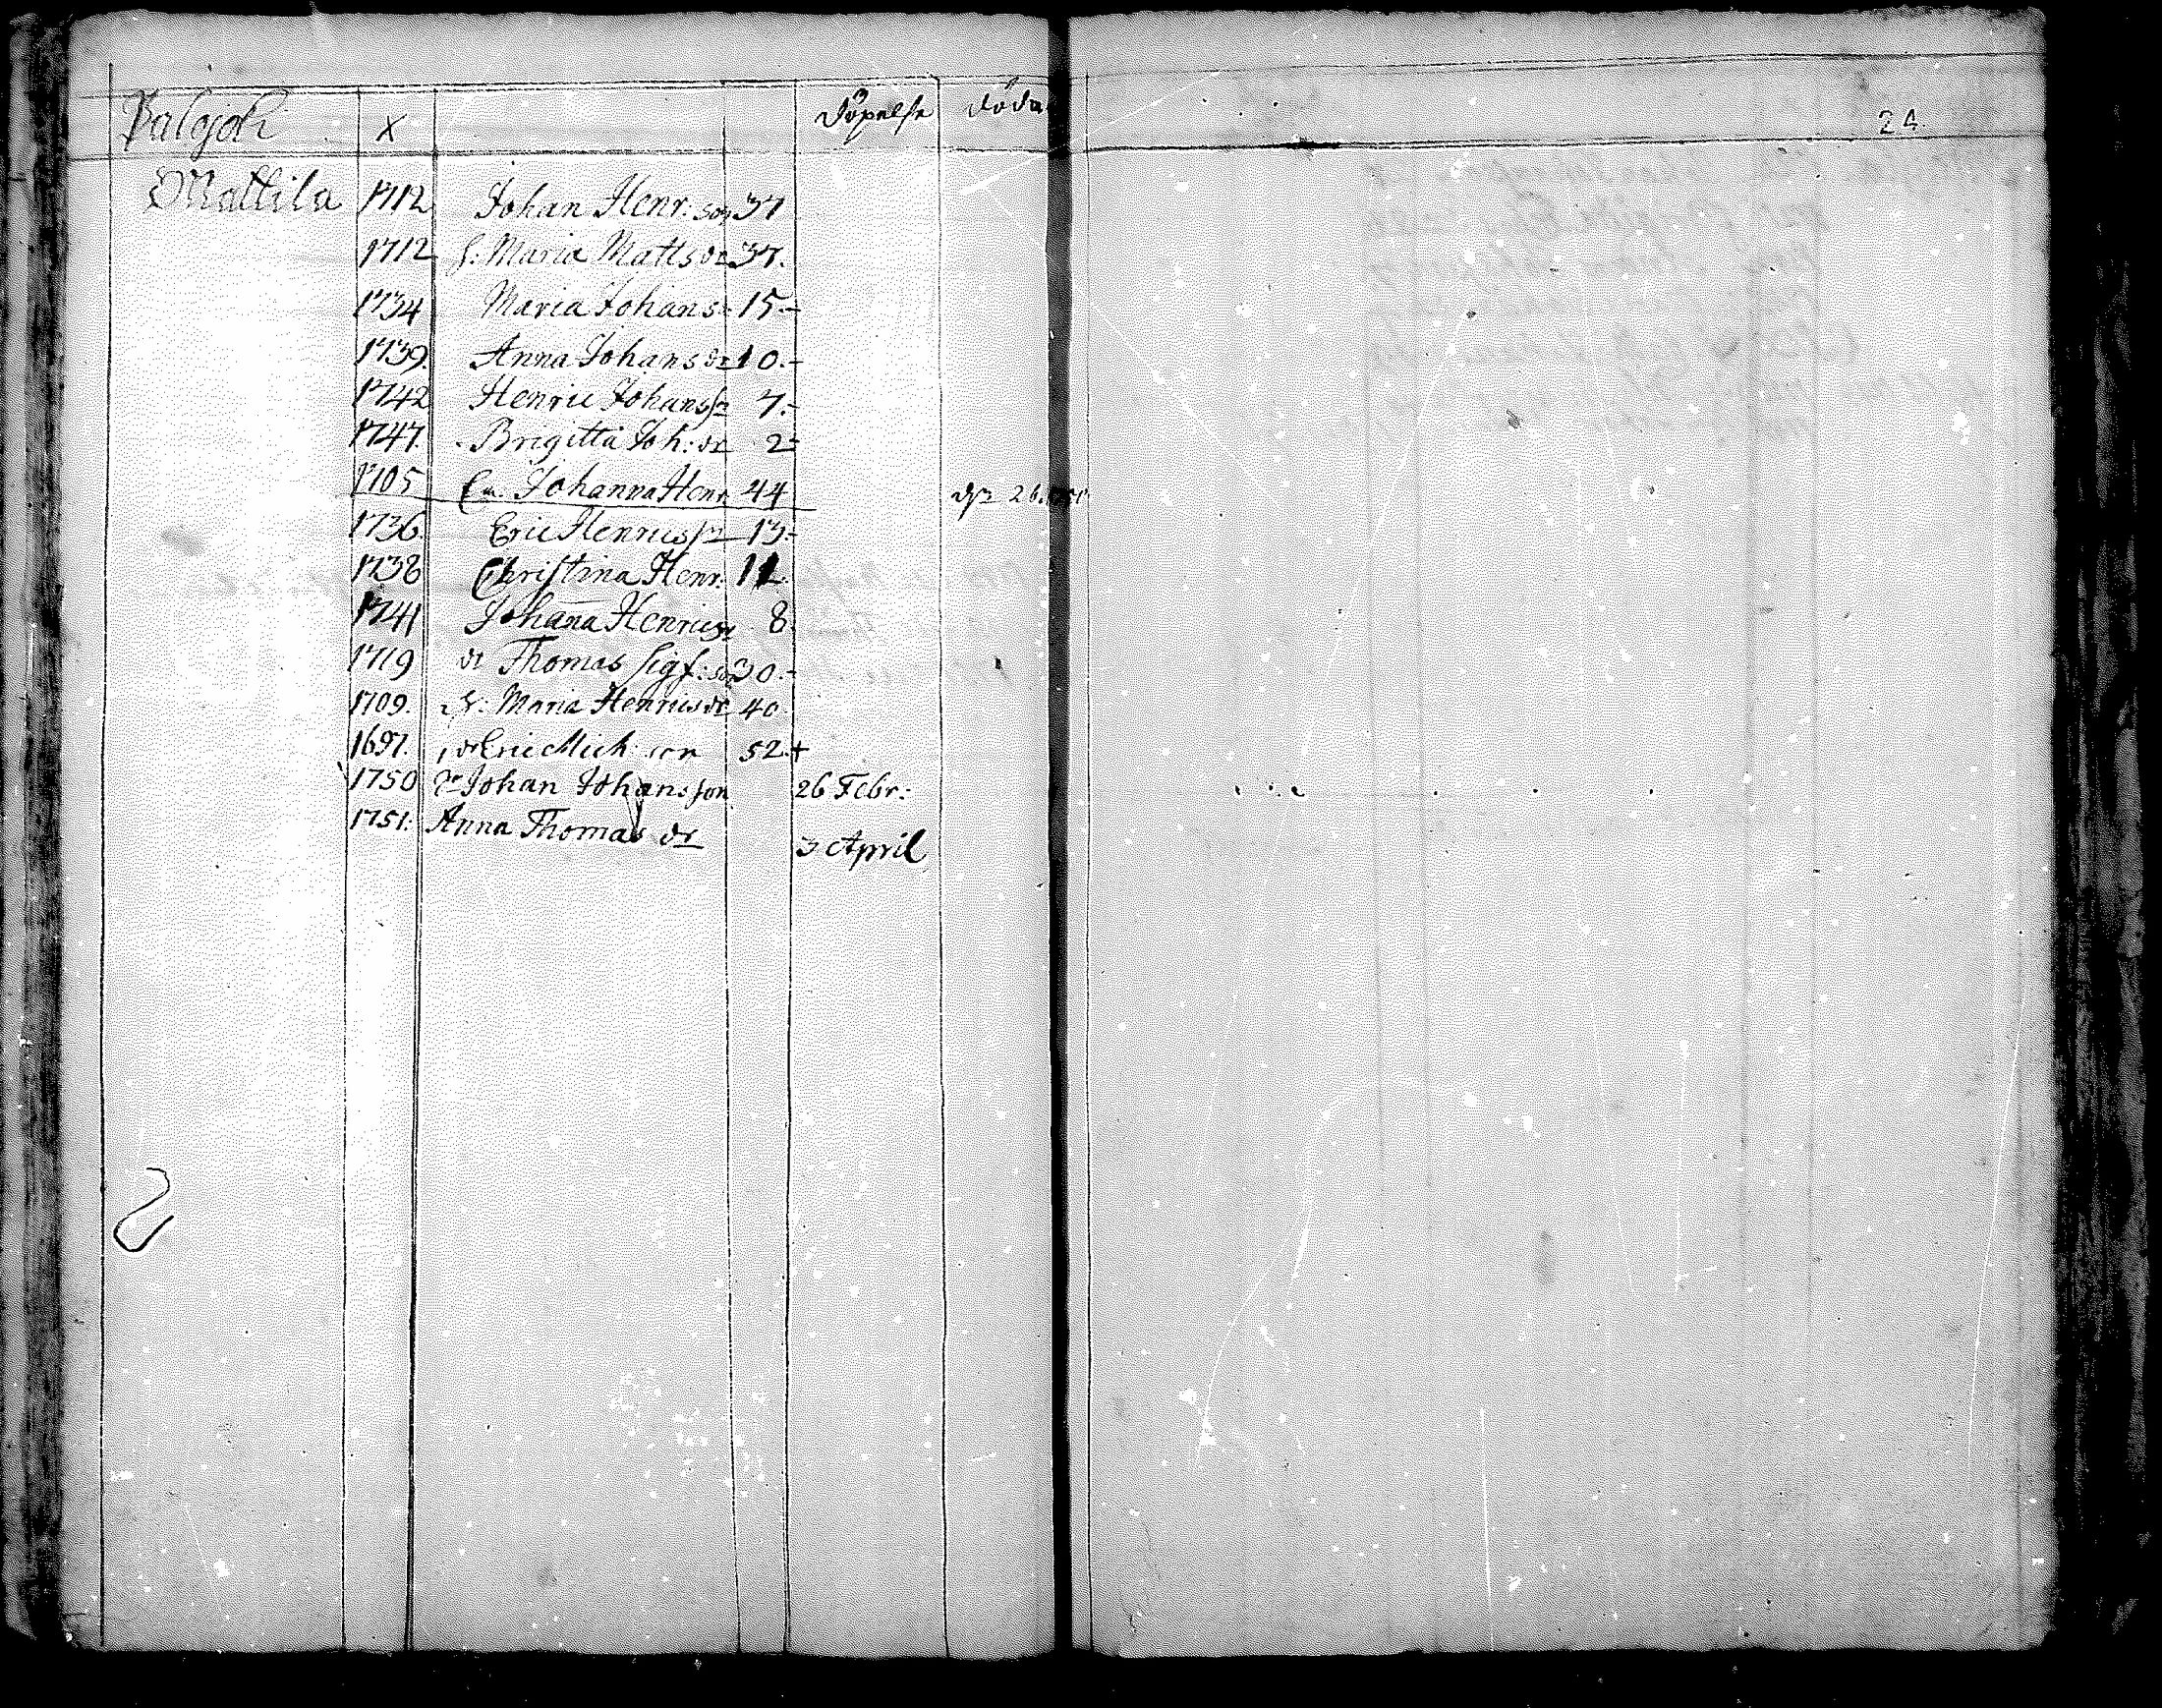 Palojoki x Döpelse döda 24
Mattila 1712 Johan Henr: son 37
1712 h: Maria Matts dr 37.
1734 Maria Johans: 15.-
1739. Anna Johans dr 10.-
1742 Henric Johanss: 7.-
1747. Brigitta Joh: dr 2-
1705 Enk. Johanna Henr 44 26.
1736. Eric Henricss: 13.-
1738 Christina Henr. 11.
1741 Johana Henricsdr 8.
1719 dr Thomas Sigf: son 30.-
1709. H: Maria Henricsdr 40
1697. dr Eric Mich: son 52.+
1750 Johan Johansson 26 Febr:
1751: Anna Thomas dr 3 April